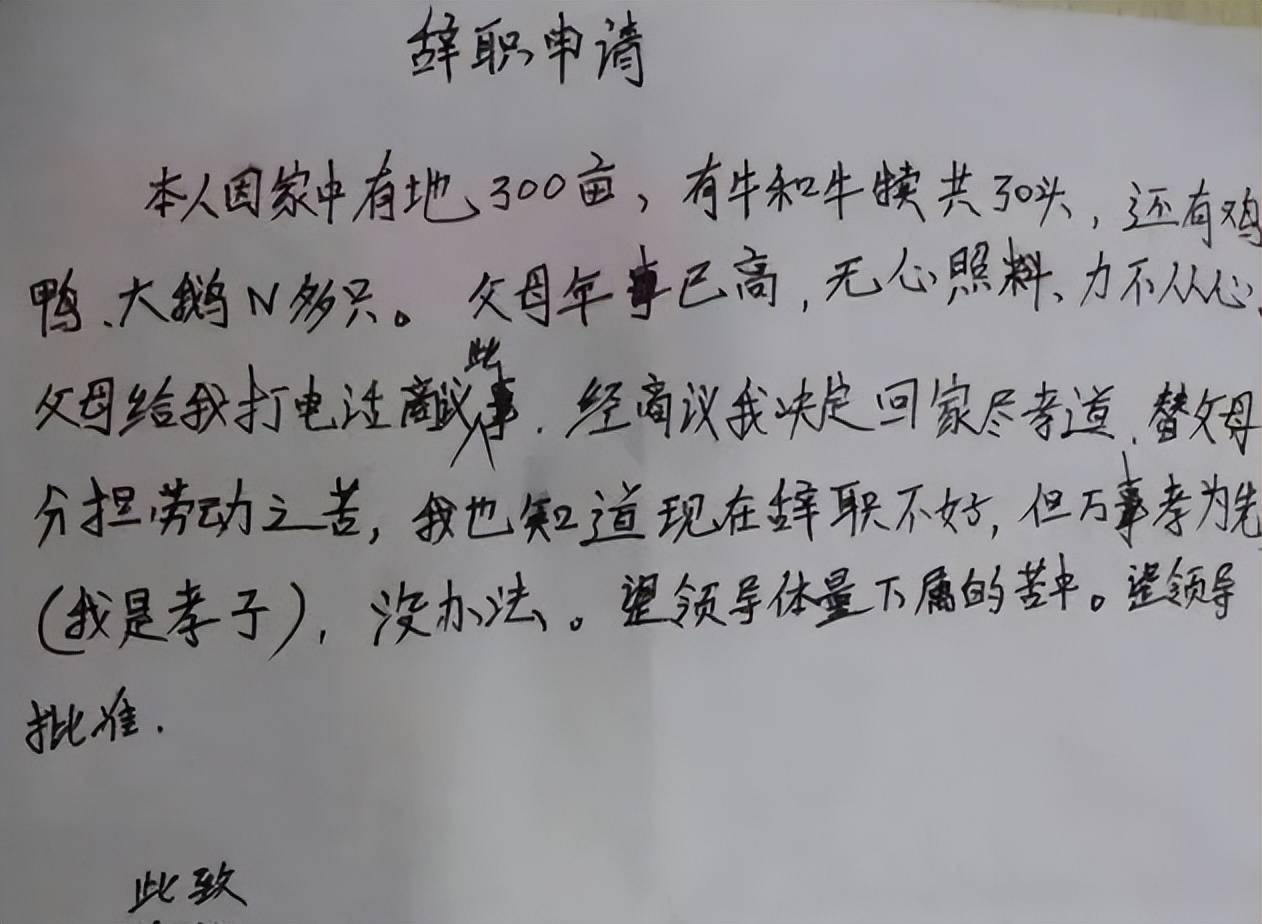 辞职申请
本人因家中有地300亩，有牛和牛犊共30头，还有鸡
鸭、大鹅N多只。父母年事已高，无心照料、力不从心、
父母给我打电话商议此事．经商议我决定回家尽孝道、替父母
分担劳动之苦，我也知道现在辞职不好，但万事孝为先
（我是孝子），没办法。望领导体量下属的苦中。望领导
批准．
此致